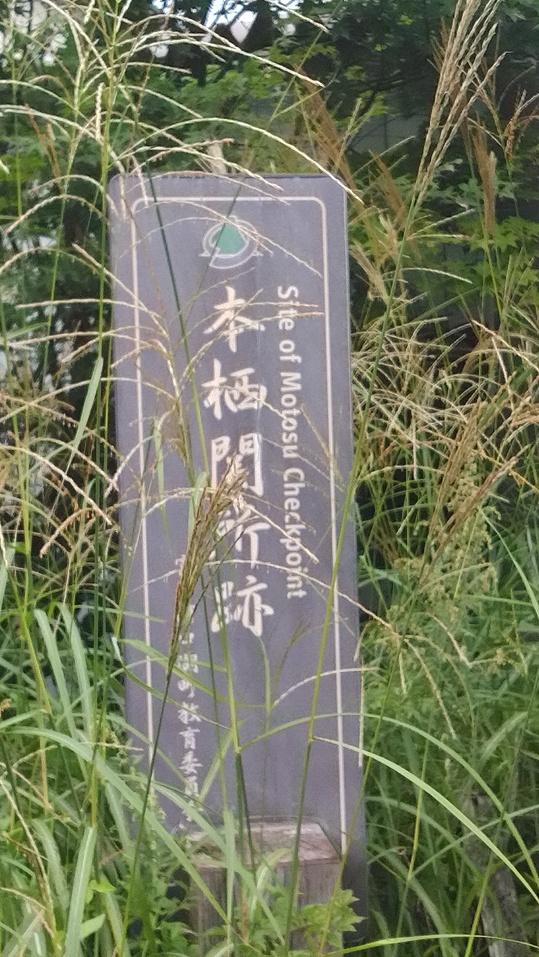 Site of Motosu Checkpoint
本栖関所跡
湖町教育委員